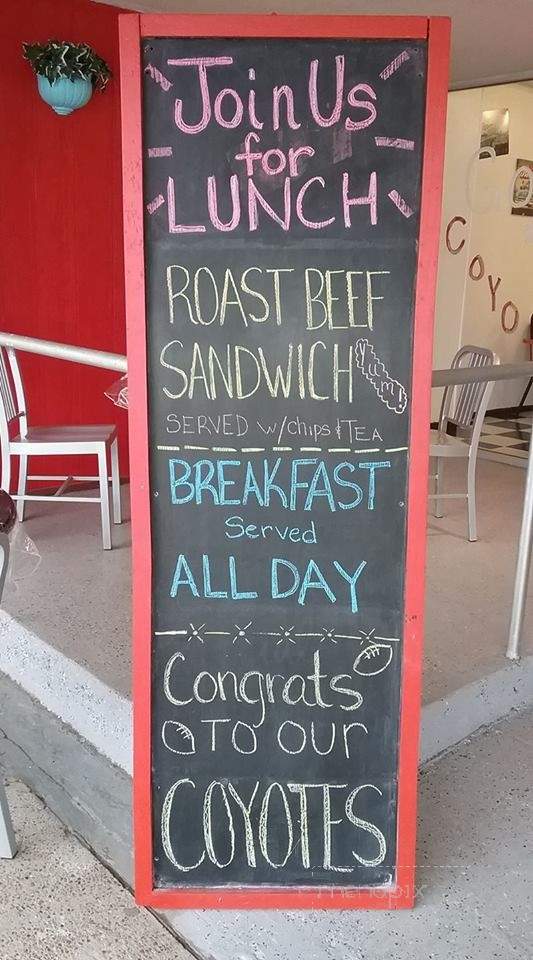 Join Us
for
LUNCH
ROAST BEEF
SANDWICH
YUMM
SERVED w/chips & TEA
BREAKFAST
Served
ALL DAY
Congrats
TO our
COYOTES
COYO